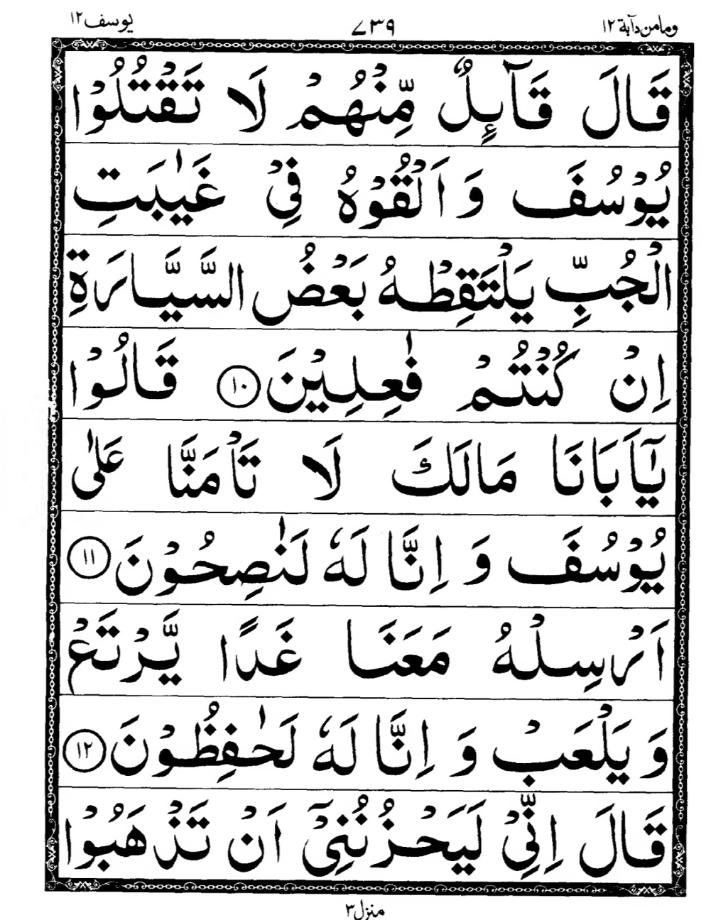 ومامن دآبة ١٢ ٧٣٩ يوسف ١٢
قَالَ قَآئِلٌ مِّنْهُمْ لَا تَقْتُلُوْا
يُوْسُفَ وَ اَلْقُوْهُ فِیْ غَیٰبَتِ
الْجُبِّ یَلْتَقِطْهُ بَعْضُ السَّیَّارَةِ
اِنْ كُنْتُمْ فٰعِلِیْنَ ١٠ قَالُوْا
یٰۤاَبَانَا مَالَكَ لَا تَاْمَنَّا عَلٰی
یُوْسُفَ وَ اِنَّا لَهٗ لَنٰصِحُوْنَ ١١
اَرْسِلْهُ مَعَنَا غَدًا یَّرْتَعْ
وَ یَلْعَبْ وَ اِنَّا لَهٗ لَحٰفِظُوْنَ ١٢
قَالَ اِنِّیْ لَیَحْزُنُنِیْۤ اَنْ تَذْهَبُوْا
منزل ٣